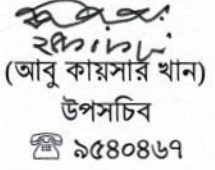 (আবু কায়সার খান)
উপসচিব
☎ ৯৫৪০৪৬৭